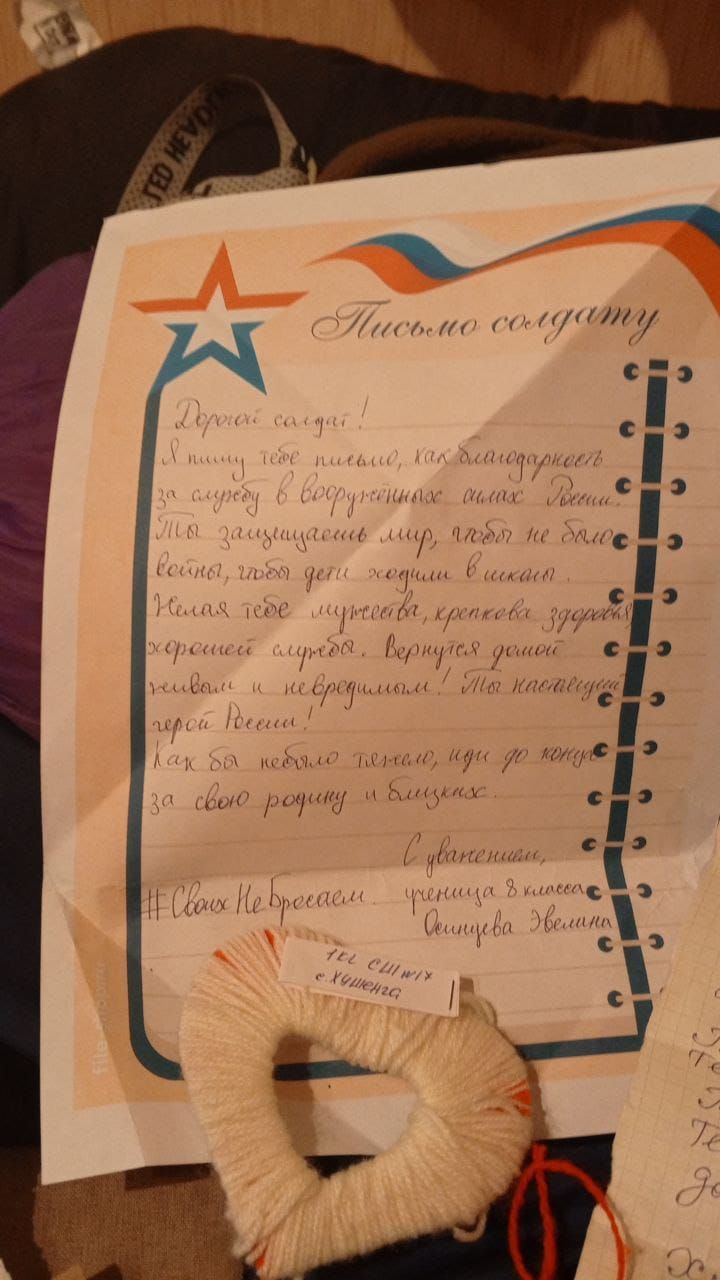 TED HEVOL
Письмо солдату
Дорогой солдат!
Я пишу тебе письмо, как благодарность
за службу в вооружённых силах России.
Ты защищаешь мир, чтобы не было
войны, чтобы дети ходили в школы.
Желая тебе мужества, крепкова здоровья,
хорошей службы. Вернутся домой
живым и невредимым! Ты настоящий
герой России!
Как бы небыло тяжело, иди до конца
за свою родину и близких.
С уважением,
#СвоихНеБросаем. ученица 8 класса
Осинцева Эвелина
1кл СШ №17
с. Хушенга